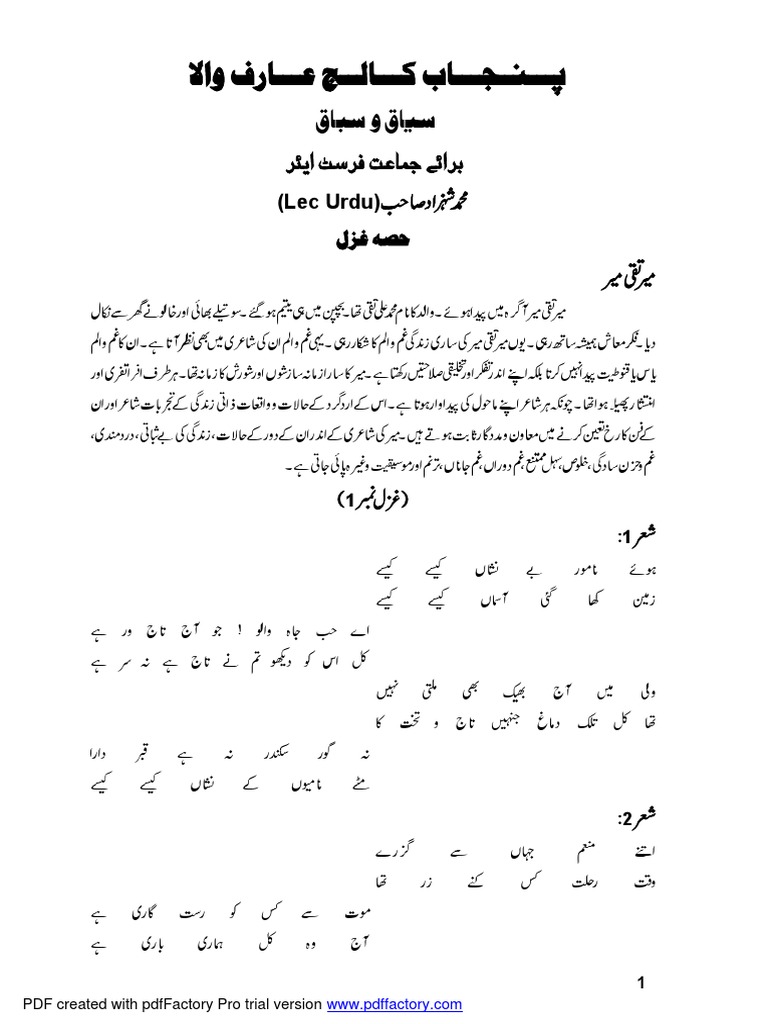 پنجاب کالج عارف والا
سیاق و سباق
برائے جماعت فرسٹ ایئر
محمد شہزاد صاحب (Lec Urdu)
حصہ غزل
میر تقی میر
میر تقی میر آگرہ میں پیدا ہوئے۔ والد کا نام محمد علی تقی تھا۔ بچپن میں ہی یتیم ہو گئے۔ سوتیلے بھائی اور خالو نے گھر سے نکال
دیا۔ فکر معاش ہمیشہ ساتھ رہی۔ یوں میر تقی میر کی ساری زندگی غم و الم کا شکار رہی۔ یہی غم و الم ان کی شاعری میں بھی نظر آتا ہے۔ ان کا غم و الم
یاس یا قنوطیت پیدا نہیں کرتا بلکہ اپنے اندر تفکر اور تخلیقی صلاحتیں رکھتا ہے۔ میر کا سارا زمانہ سازشوں اور شورش کا زمانہ تھا۔ ہر طرف افراتفری اور
انتشار پھیلا ہوا تھا۔ چونکہ ہر شاعر اپنے ماحول کی پیداوار ہوتا ہے۔ اس کے اردگرد کے حالات و واقعات ذاتی زندگی کے تجربات شاعر اور ان
کے فن کا رخ تعین کرنے میں معاون و مددگار ثابت ہوتے ہیں۔ میر کی شاعری کے اندر ان کے دور کے حالات، زندگی کی بے ثباتی، دردمندی،
غم و حزن سادگی، خلوص، سہل ممتنع، غم دوراں، غم جاناں، ترنم اور موسیقیت وغیرہ پائی جاتی ہے۔
(غزل نمبر 1)
شعر 1:
ہوئے نامور بے نشاں کیسے کیسے
زمین کھا گئی آسماں کیسے کیسے
اے حب جاہ والو ! جو آج تاج ور ہے
کل اس کو دیکھو تم نے تاج ہے نہ سر ہے
ولی میں آج بھیک بھی ملتی نہیں
تھا کل تلک دماغ جنہیں تاج و تخت کا
نہ گور سکندر نہ ہے قبر دارا
مٹے نامیوں کے نشاں کیسے کیسے
شعر 2:
اتنے منعم جہاں سے گزرے
وقت رحلت کس کنے زر تھا
موت سے کس کو رست گاری ہے
آج وہ کل ہماری باری ہے
1
PDF created with pdfFactory Pro trial version www.pdffactory.com